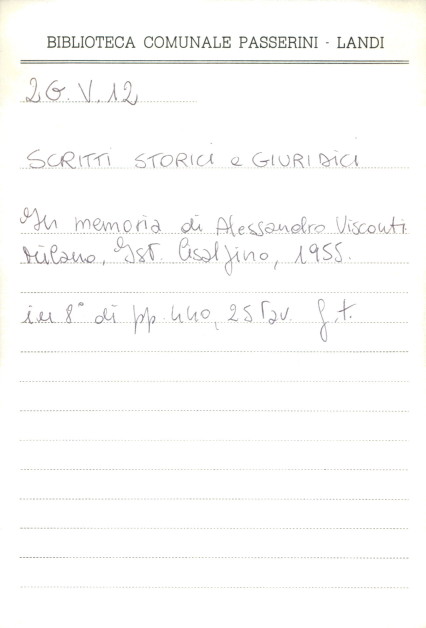 BIBLIOTECA COMUNALE PASSERINI - LANDI
2G.V.12
SCRITTI STORICI e GIURIDICI
In memoria di Alessandro Visconti.
Milano, Ist. Cisalpino, 1955.
in 8° di pp. 440, 25 Tav. f.t.